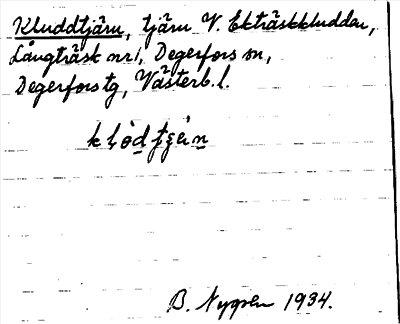 Kluddtjärn, tjärn V. Ekträskkluddan,
Långträsk nr 1, Degerfors sn,
Degerforstg, Västerb. l.
B. Nygren 1934.